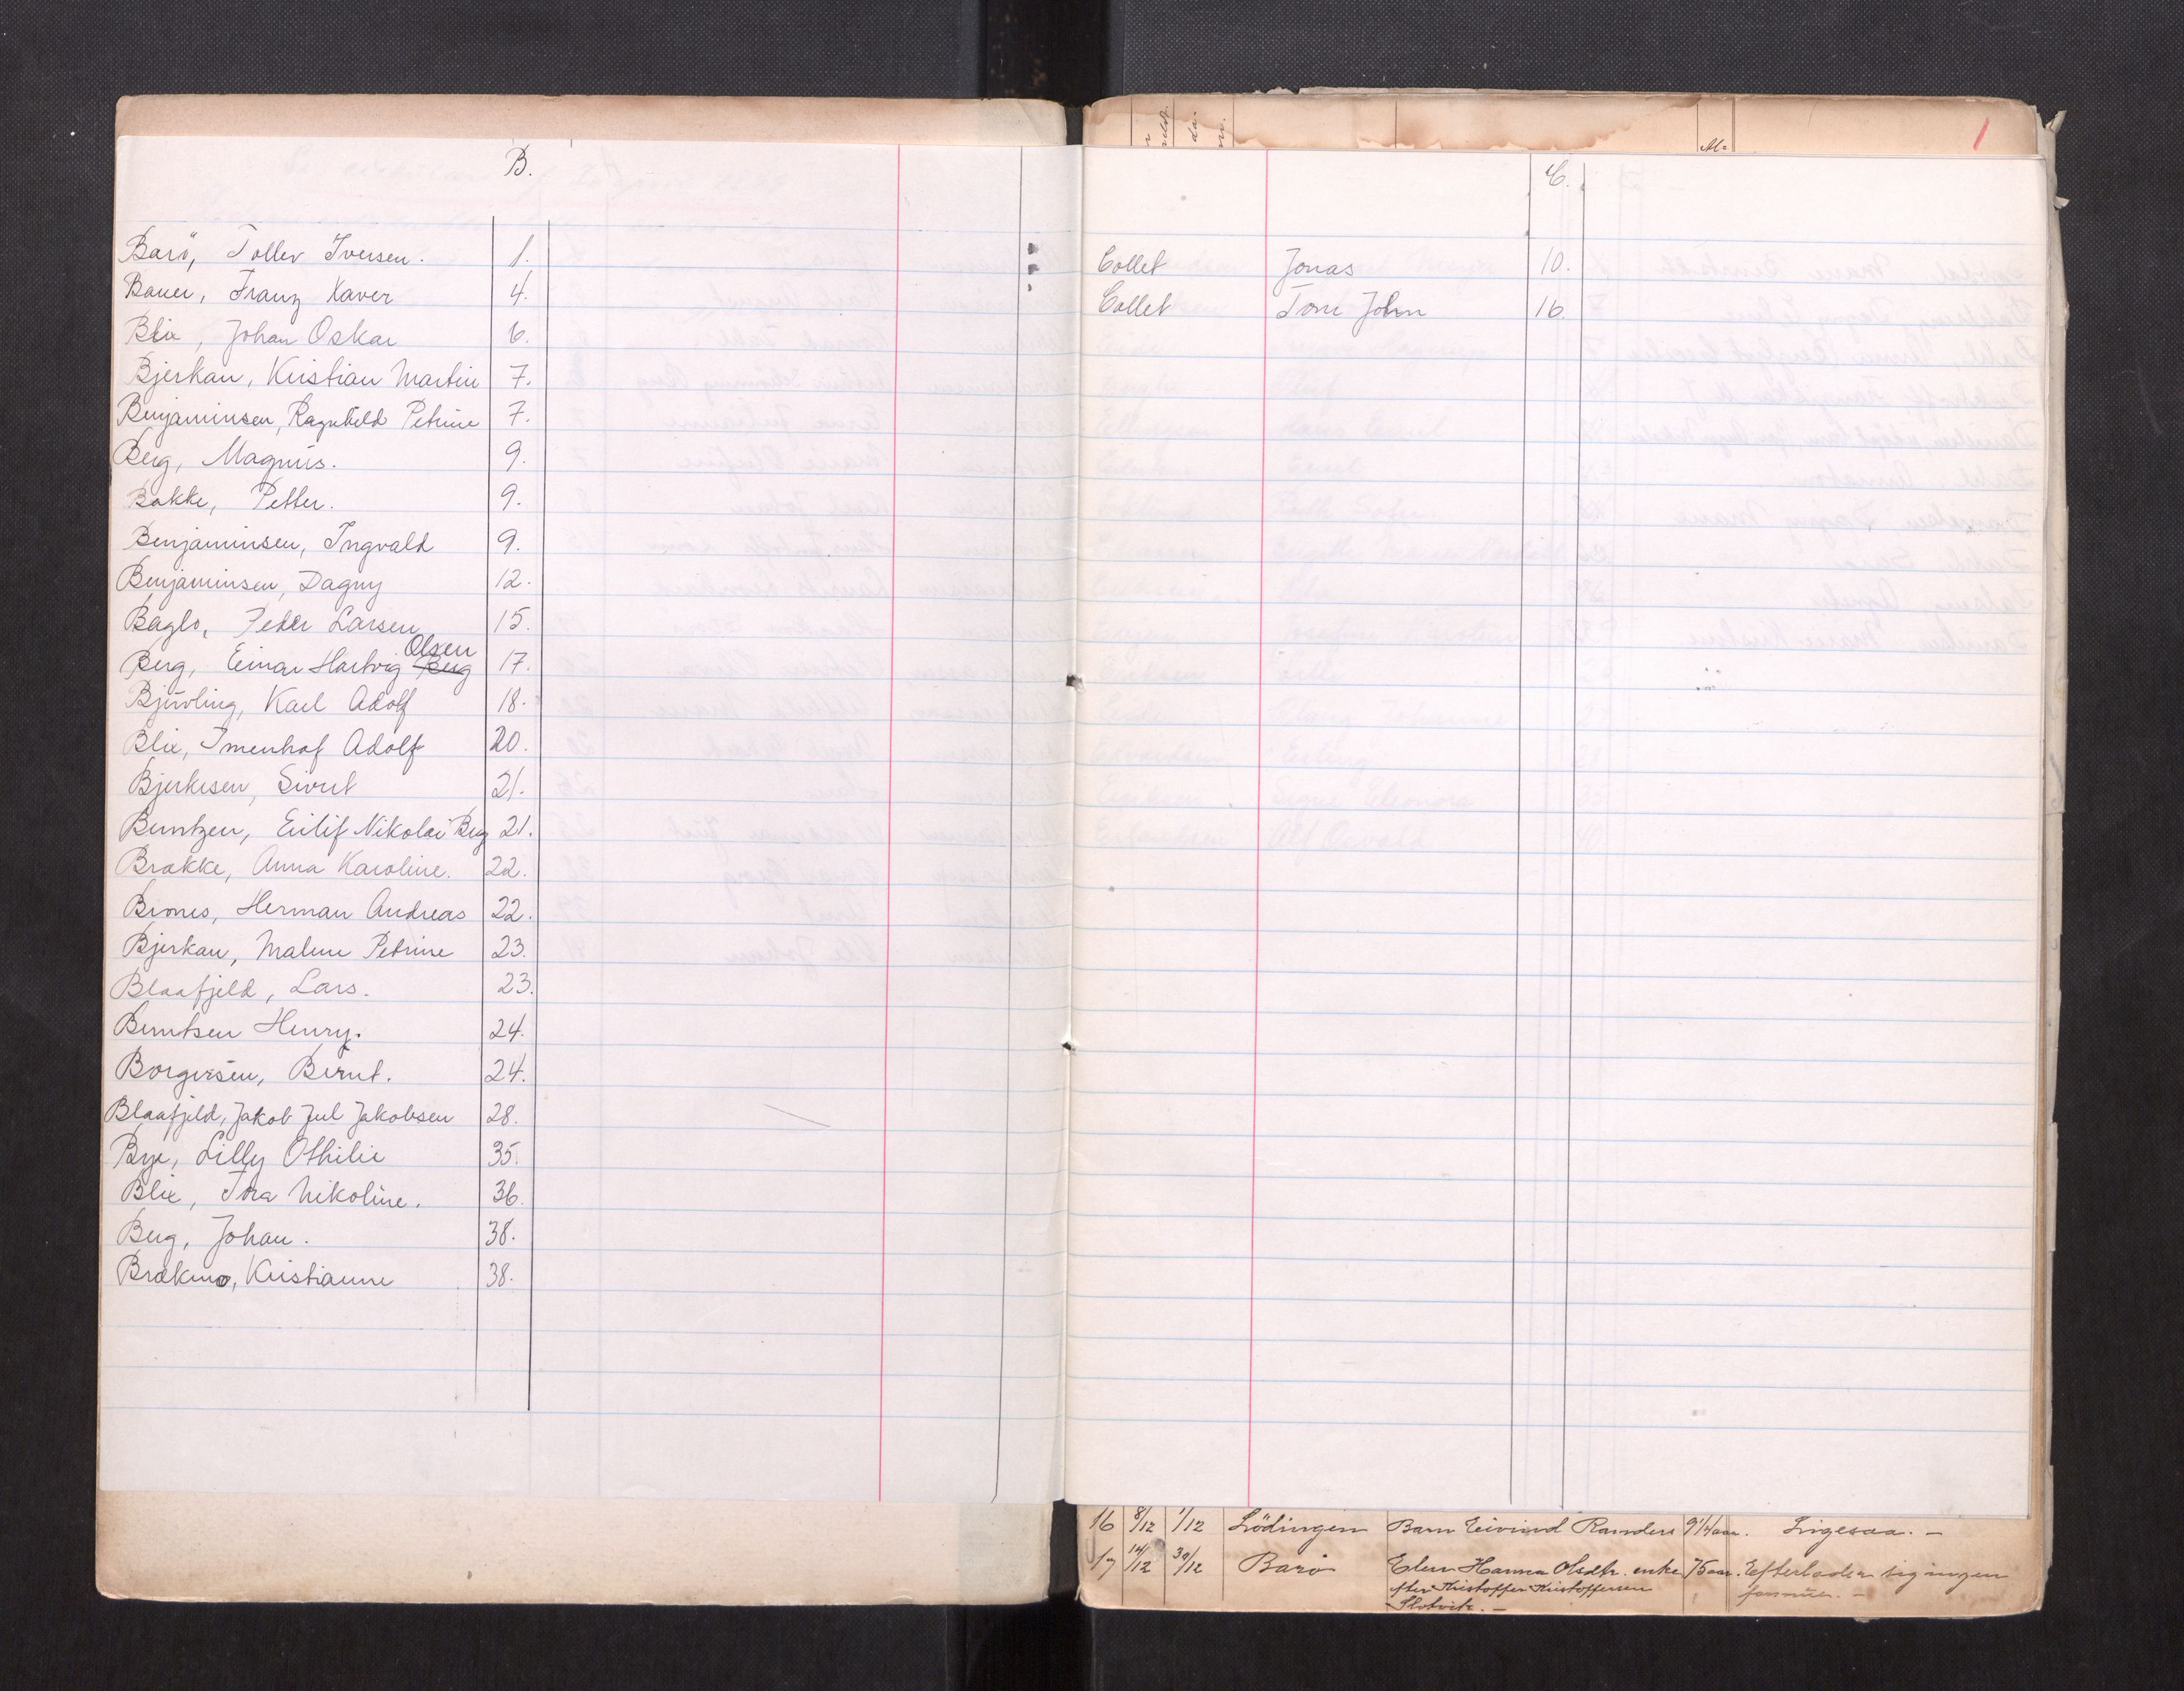 B.
Barö, Tollev Iversen. 1.
Bauer, Franz Xaver 4.
Blix, Johan Oskar 6.
Bjerkan, Kristian Martin 7.
Benjaminsen, Ragnhild Petrine 7.
Berg, Magnus. 9.
Bakke, Petter. 9.
Benjaminsen, Ingvald 9.
Benjaminsen, Dagny 12.
Baglo, Peder Larsen 15.
Olsen
Berg, Einar Hartvig Berg 17.
Bjurling, Karl Adolf 18.
Blix, Imenhof Adolf 20.
Bjerkesen, Sivert 21.
Berntzen, Eilif Nikolai Berg 21.
Brakke, Anna Karoline. 22.
Brones, Herman Andreas 22.
Bjerkan, Malene Petrine 23.
Blaafjeld, Lars. 23.
Berntsen Henry. 24.
Borgersen, Bernt. 24.
Blaafjeld, Jakob Jul Jakobsen 28.
Bye, Lilly Othilie 35.
Blix, Tora Nikoline. 36.
Berg, Johan. 38.
Brækmo, Kristianne 38.
1
C.
Collet Jonas 10.
Collet Tom John 16.
16 8/12 1/12 Lödingen Barn Eivind Randers 9 1/4 aar. Ligesaa. -
17 14/12 30/12 Barö Elen Hanna Olsdtr. enke 75 aar. Efterlader sig ingen
efter Kristoffer Kristoffersen formue. -
Slotvik. -